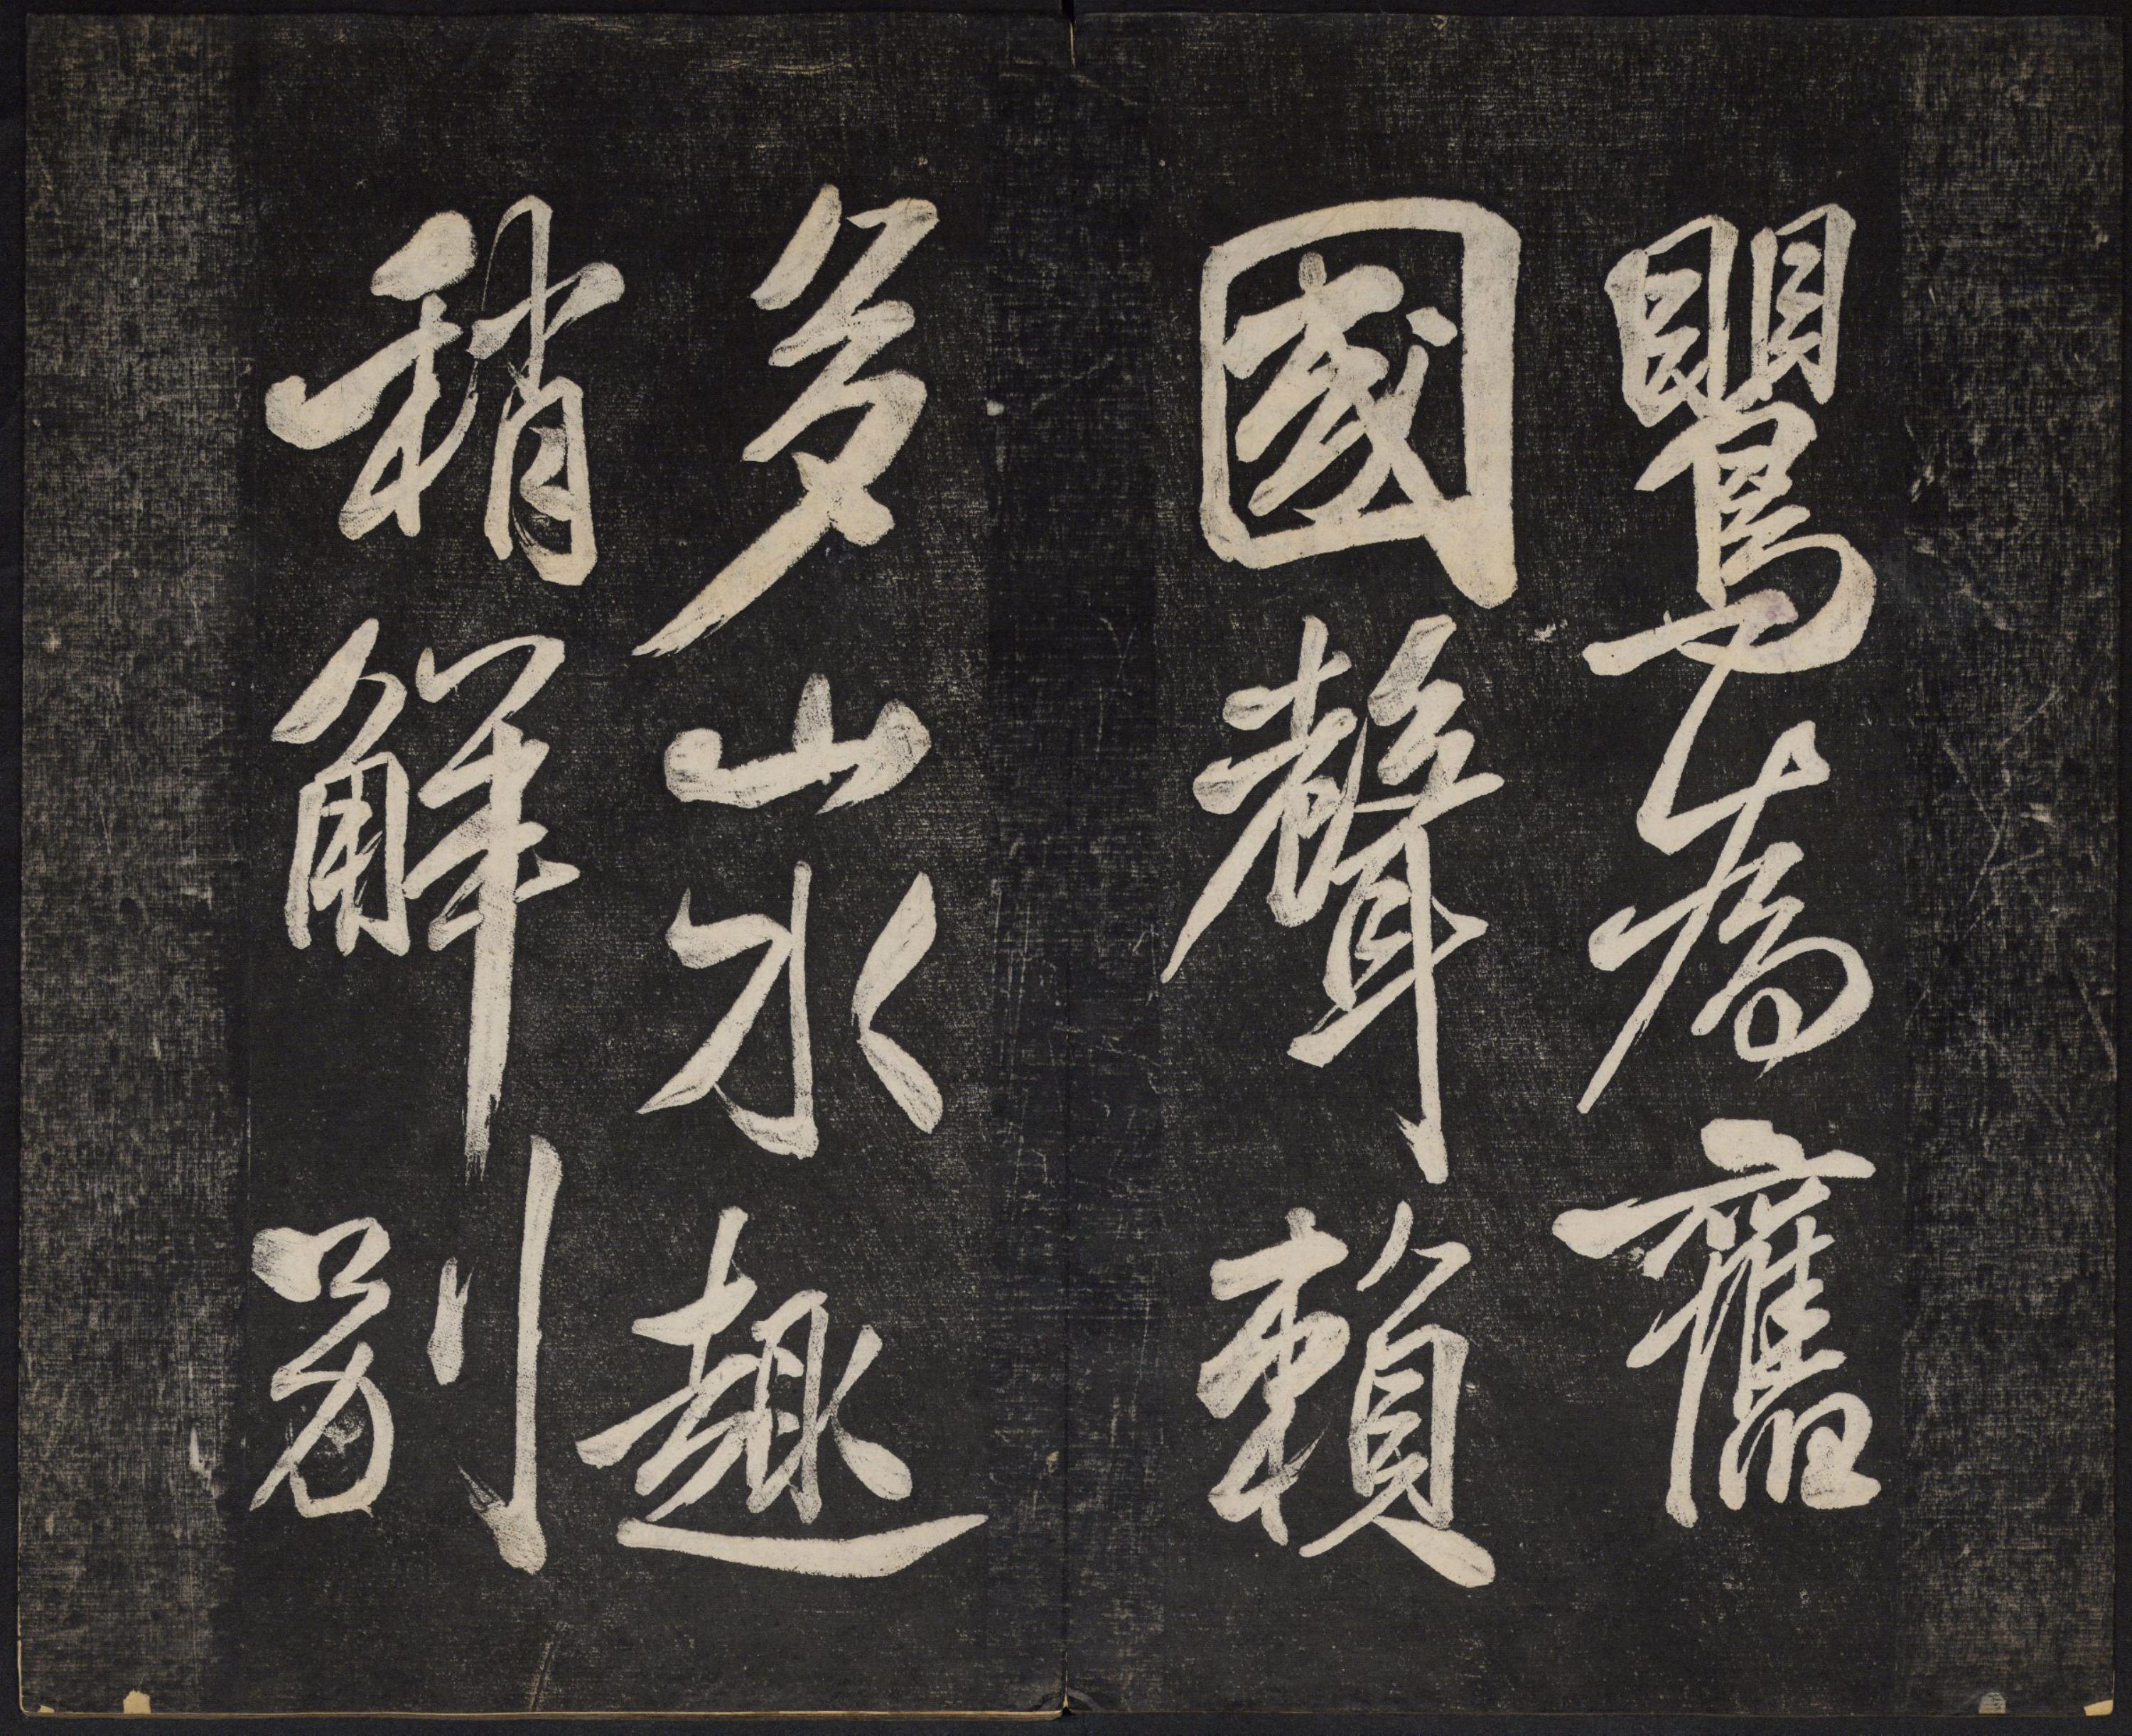 鸎為舊
國聲賴
多山水趣
稍解別